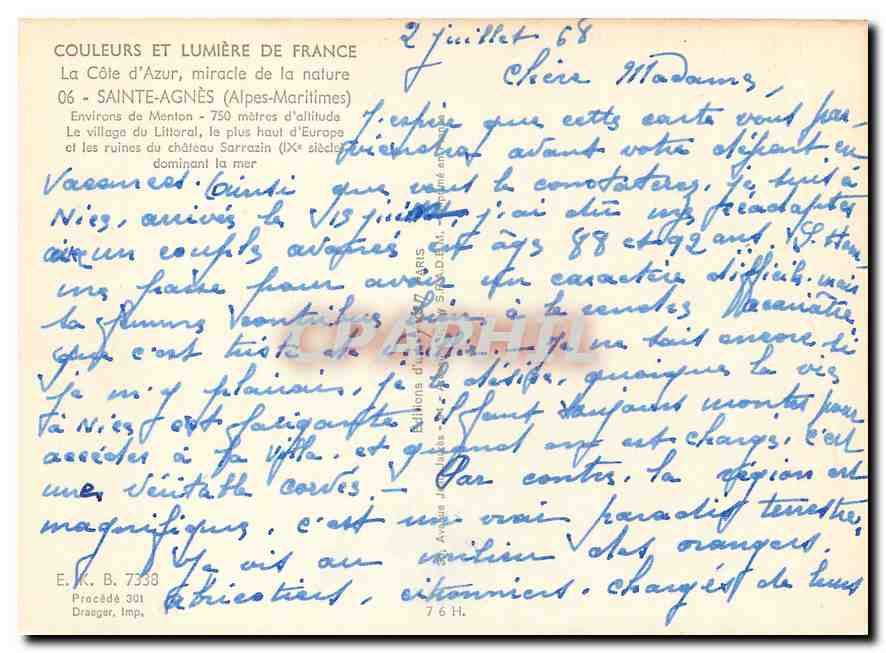 COULEURS ET LUMIÈRE DE FRANCE
La Côte d'Azur, miracle de la nature
06 - SAINTE-AGNÈS (Alpes-Maritimes)
Environs de Menton - 750 mètres d'altitude
Le village du Littoral, le plus haut d'Europe
et les ruines du château Sarrazin (IXe siècle)
dominant la mer
2 juillet 68
Chère Madame,
J'espère que cette carte vous par-
viendra avant votre départ en
Vacances. Ainsi que vous le constaterez, je suis à
Nice, arrivée le 15 juin, j'ai dû me réadapter
avec un couple avancés en âge 88 et 92 ans.
me passe pour avoir un caractère difficile mais
la femme contribue bien à le rendre acariâtre
que c'est triste de vieillir. - Je ne sais encore si
je m'y plairais, je le désire, quoique la vie
à Nice est fatigante il faut toujours monter pour
accéder à la villa, et quand on est chargé, c'est
une véritable corvée. - Par contre, la région est
magnifique, c'est un vrai paradis terrestre,
Je vis au milieu des orangers,
abricotiers, citronniers, chargés de leurs
E. K. B. 7338
Procédé 301
Draeger, Imp.
76 H.
Editions d'art
PARIS
Avenue Jean Jaurès
S.P.A.D.E.M.
Imprimé en France
CPAPHIL